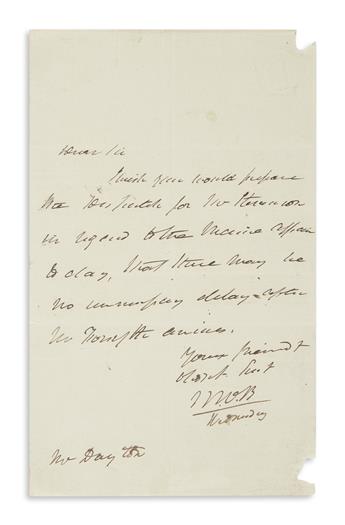 Dear Sir
I wish you would prepare
the Dispatch for Mr Stevenson
in regard to the Maine affair
to day, that there may be
no unnecessary delay after
Mr Forsyth arrives.
Your friend &
Obedt Sert
M.V.B
Wednesday
Mr Dayton